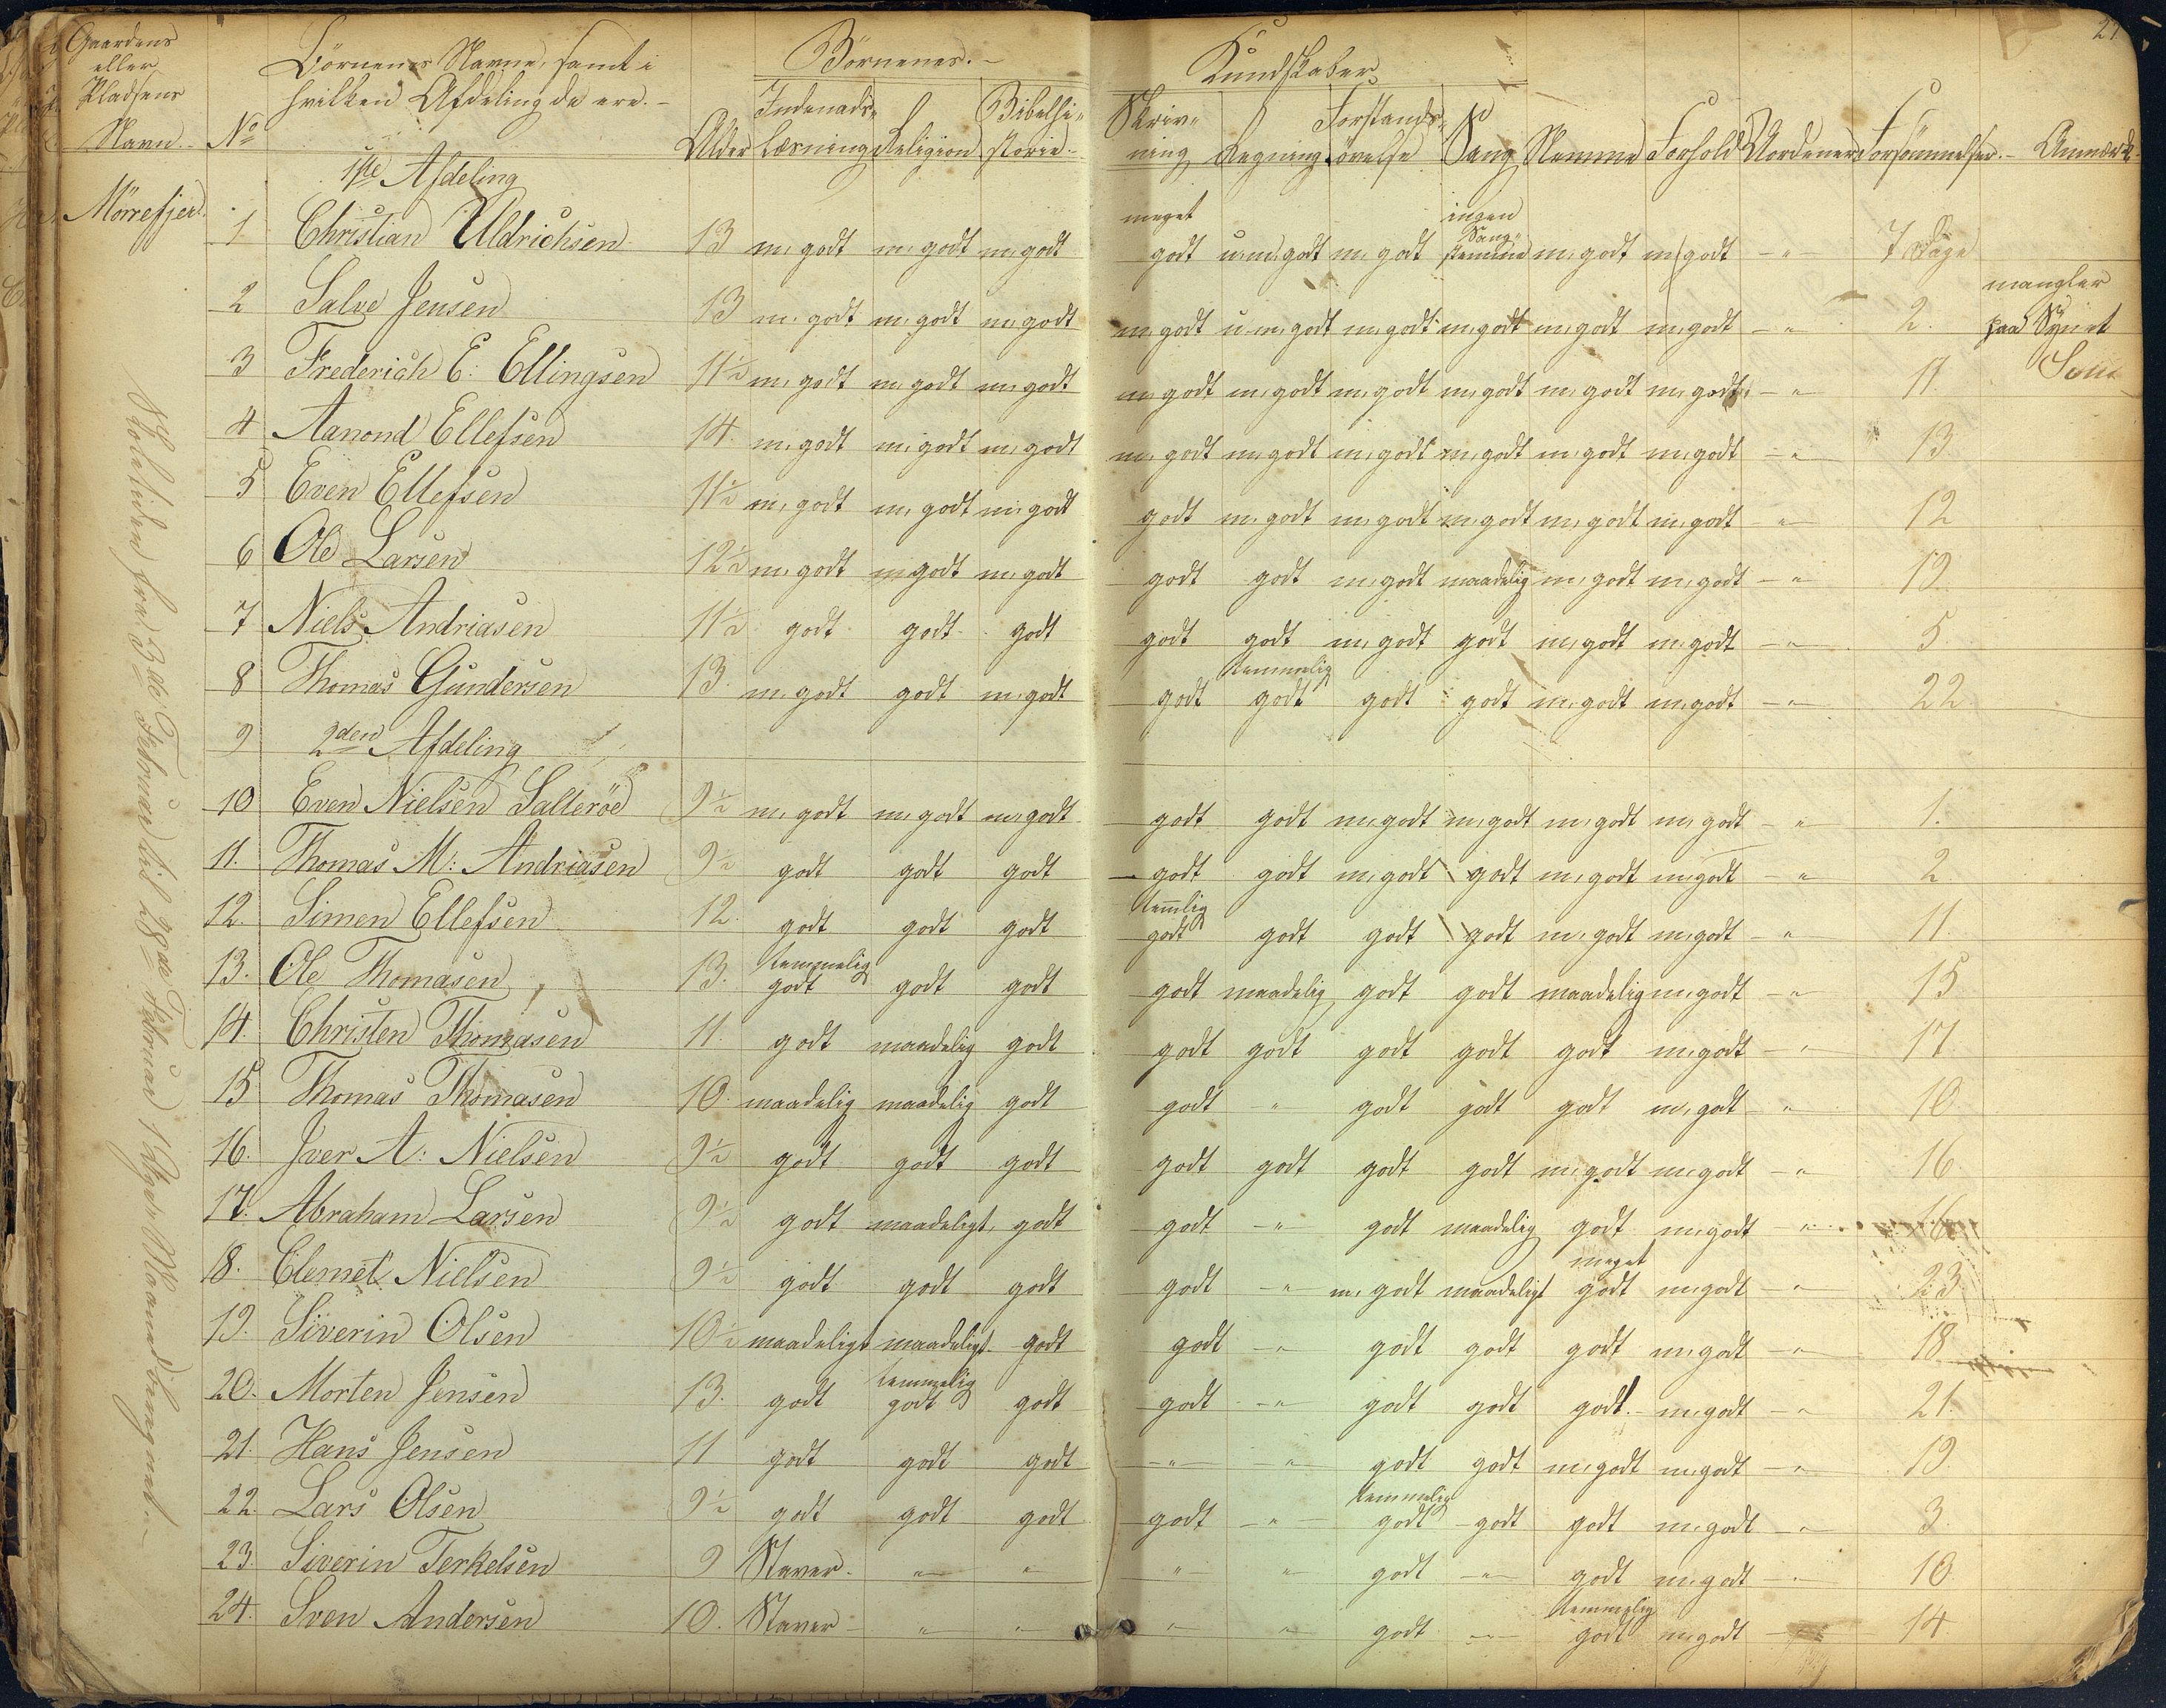 27
Gaardens eller Pladsens Navn. No Börnenes Navne, samt i hvilken Afdeling de ere. Alder Börnenes Kundskaber
Indenads-læsning Religion Bibelhi-storie. Skriv-ning Regning Forstands-övelse Sang Nemme Forhold Uordener Forsömmelser. Anmærk.
1ste Afdeling
Mörrefjer
1 Christian Uldrichsen 13 m. godt m. godt m. godt meget godt u.m. godt m. godt ingen Sang-stemme m. godt m. godt -"- 7 Dage
2 Salve Jensen 13 m. godt m. godt m. godt m. godt u.m. godt m. godt m. godt m. godt m. godt -"- 2. mangler paa Synet
3 Frederich E: Ellingsen 11½ m. godt m. godt m. godt m. godt m. godt m. godt m. godt m. godt m. godt -"- 11.
4 Aanond Ellefsen 14. m. godt m. godt m. godt m. godt m. godt m. godt m. godt m. godt m. godt -"- 13
5 Even Ellefsen 11½ m. godt m. godt m. godt godt m. godt m. godt m. godt m. godt m. godt -"- 12
6 Ole Larsen 12½ m. godt m. godt m. godt godt godt m. godt maadelig m. godt m. godt -"- 19.
7 Niels Andriasen 11½ godt godt godt godt godt m. godt godt m. godt m. godt -"- 5.
8 Thomas Gundersen 13. m. godt godt m. godt godt temmelig godt godt godt m. godt m. godt -"- 22.
9 2den Afdeling
10 Even Nielsen Salteröe 9½ m. godt m. godt m. godt godt godt m. godt m. godt m. godt m. godt -"- 1.
11. Thomas M: Andriasen 9½ godt godt godt godt godt m. godt godt m. godt m. godt -"- 2
12. Simen Ellefsen 12. godt godt godt temlig godt godt godt godt m. godt m. godt -"- 11.
13. Ole Thomasen 13. temmelig godt godt godt godt maadelig godt godt maadelig m. godt -"- 15
14. Christen Thomasen 11. godt maadelig godt godt godt godt godt godt m. godt -"- 17
15 Thomas Thomasen 10. maadelig maadelig godt godt " godt godt godt m. godt -"- 10.
16. Iver A: Nielsen 9½ godt godt godt godt godt godt godt m. godt m. godt -"- 16.
17. Abraham Larsen 9½ godt maadeligt godt godt -"- godt maadelig godt m. godt -"- 16
18. Clemet Nielsen 9½ godt godt godt godt -"- m. godt maadeligt meget godt m. godt -"- 23
19. Siverin Olsen 10½ maadeligt maadeligt godt godt -"- godt godt godt m. godt -"- 18
20. Morten Jensen 13. godt temmelig godt godt godt -"- godt godt godt m. godt -"- 21.
21. Hans Jensen 11 godt godt godt -"- -"- godt godt m. godt m. godt -"- 19.
22. Lars Olsen 9½ godt godt godt godt -"- temmelig godt godt godt m. godt -"- 3.
23. Siverin Terkelsen 9 Staver -"- " " -"- godt -"- godt m. godt -"- 10
24. Sven Andersen 10. Staver -"- -"- -"- -"- godt -"- temmelig godt m. godt 14.
Skoletiden fra 3de Februar til 28de Februar